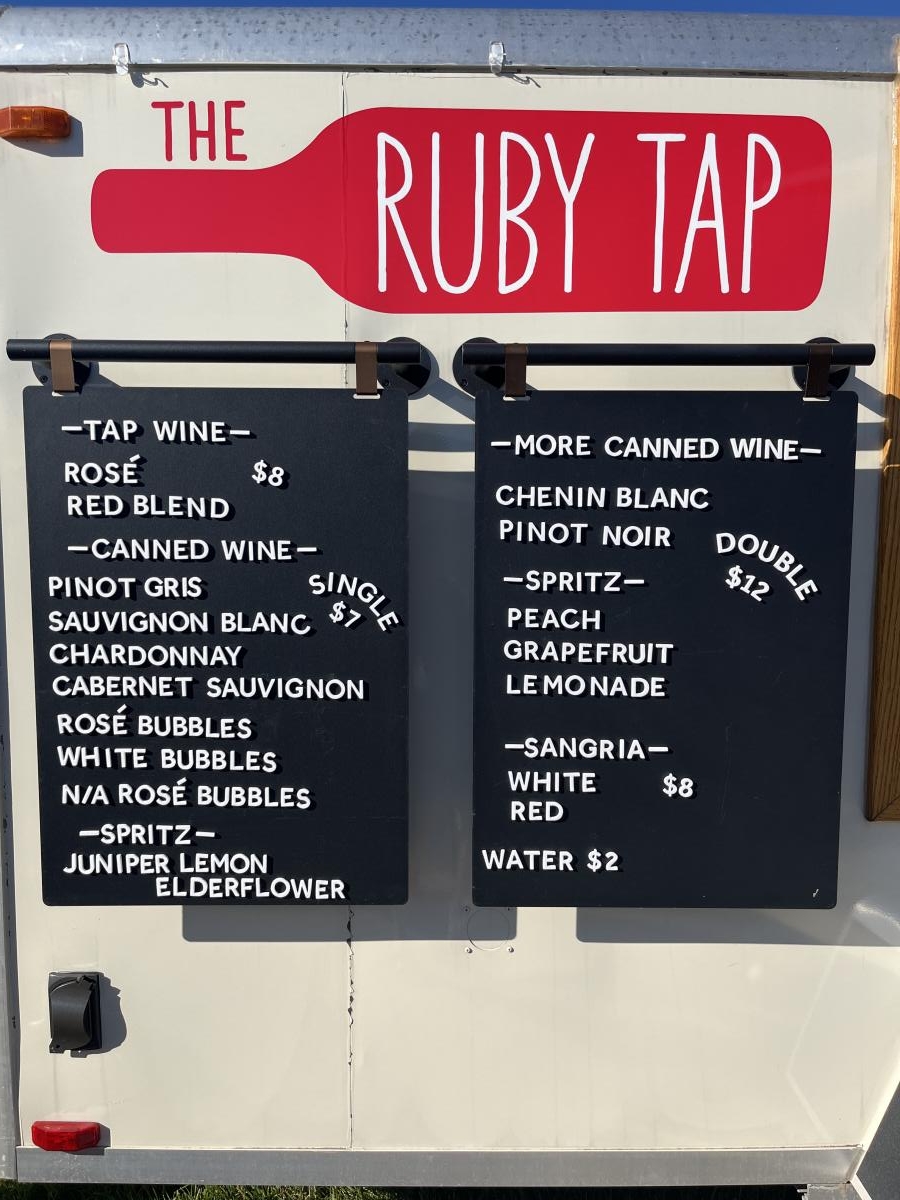 THE
RUBY TAP
—TAP WINE—
ROSÉ $8
RED BLEND
—CANNED WINE—
PINOT GRIS SINGLE
SAUVIGNON BLANC $7
CHARDONNAY
CABERNET SAUVIGNON
ROSÉ BUBBLES
WHITE BUBBLES
N/A ROSÉ BUBBLES
—SPRITZ—
JUNIPER LEMON
ELDERFLOWER
—MORE CANNED WINE—
CHENIN BLANC
PINOT NOIR DOUBLE
—SPRITZ— $12
PEACH
GRAPEFRUIT
LEMONADE
—SANGRIA—
WHITE $8
RED
WATER $2